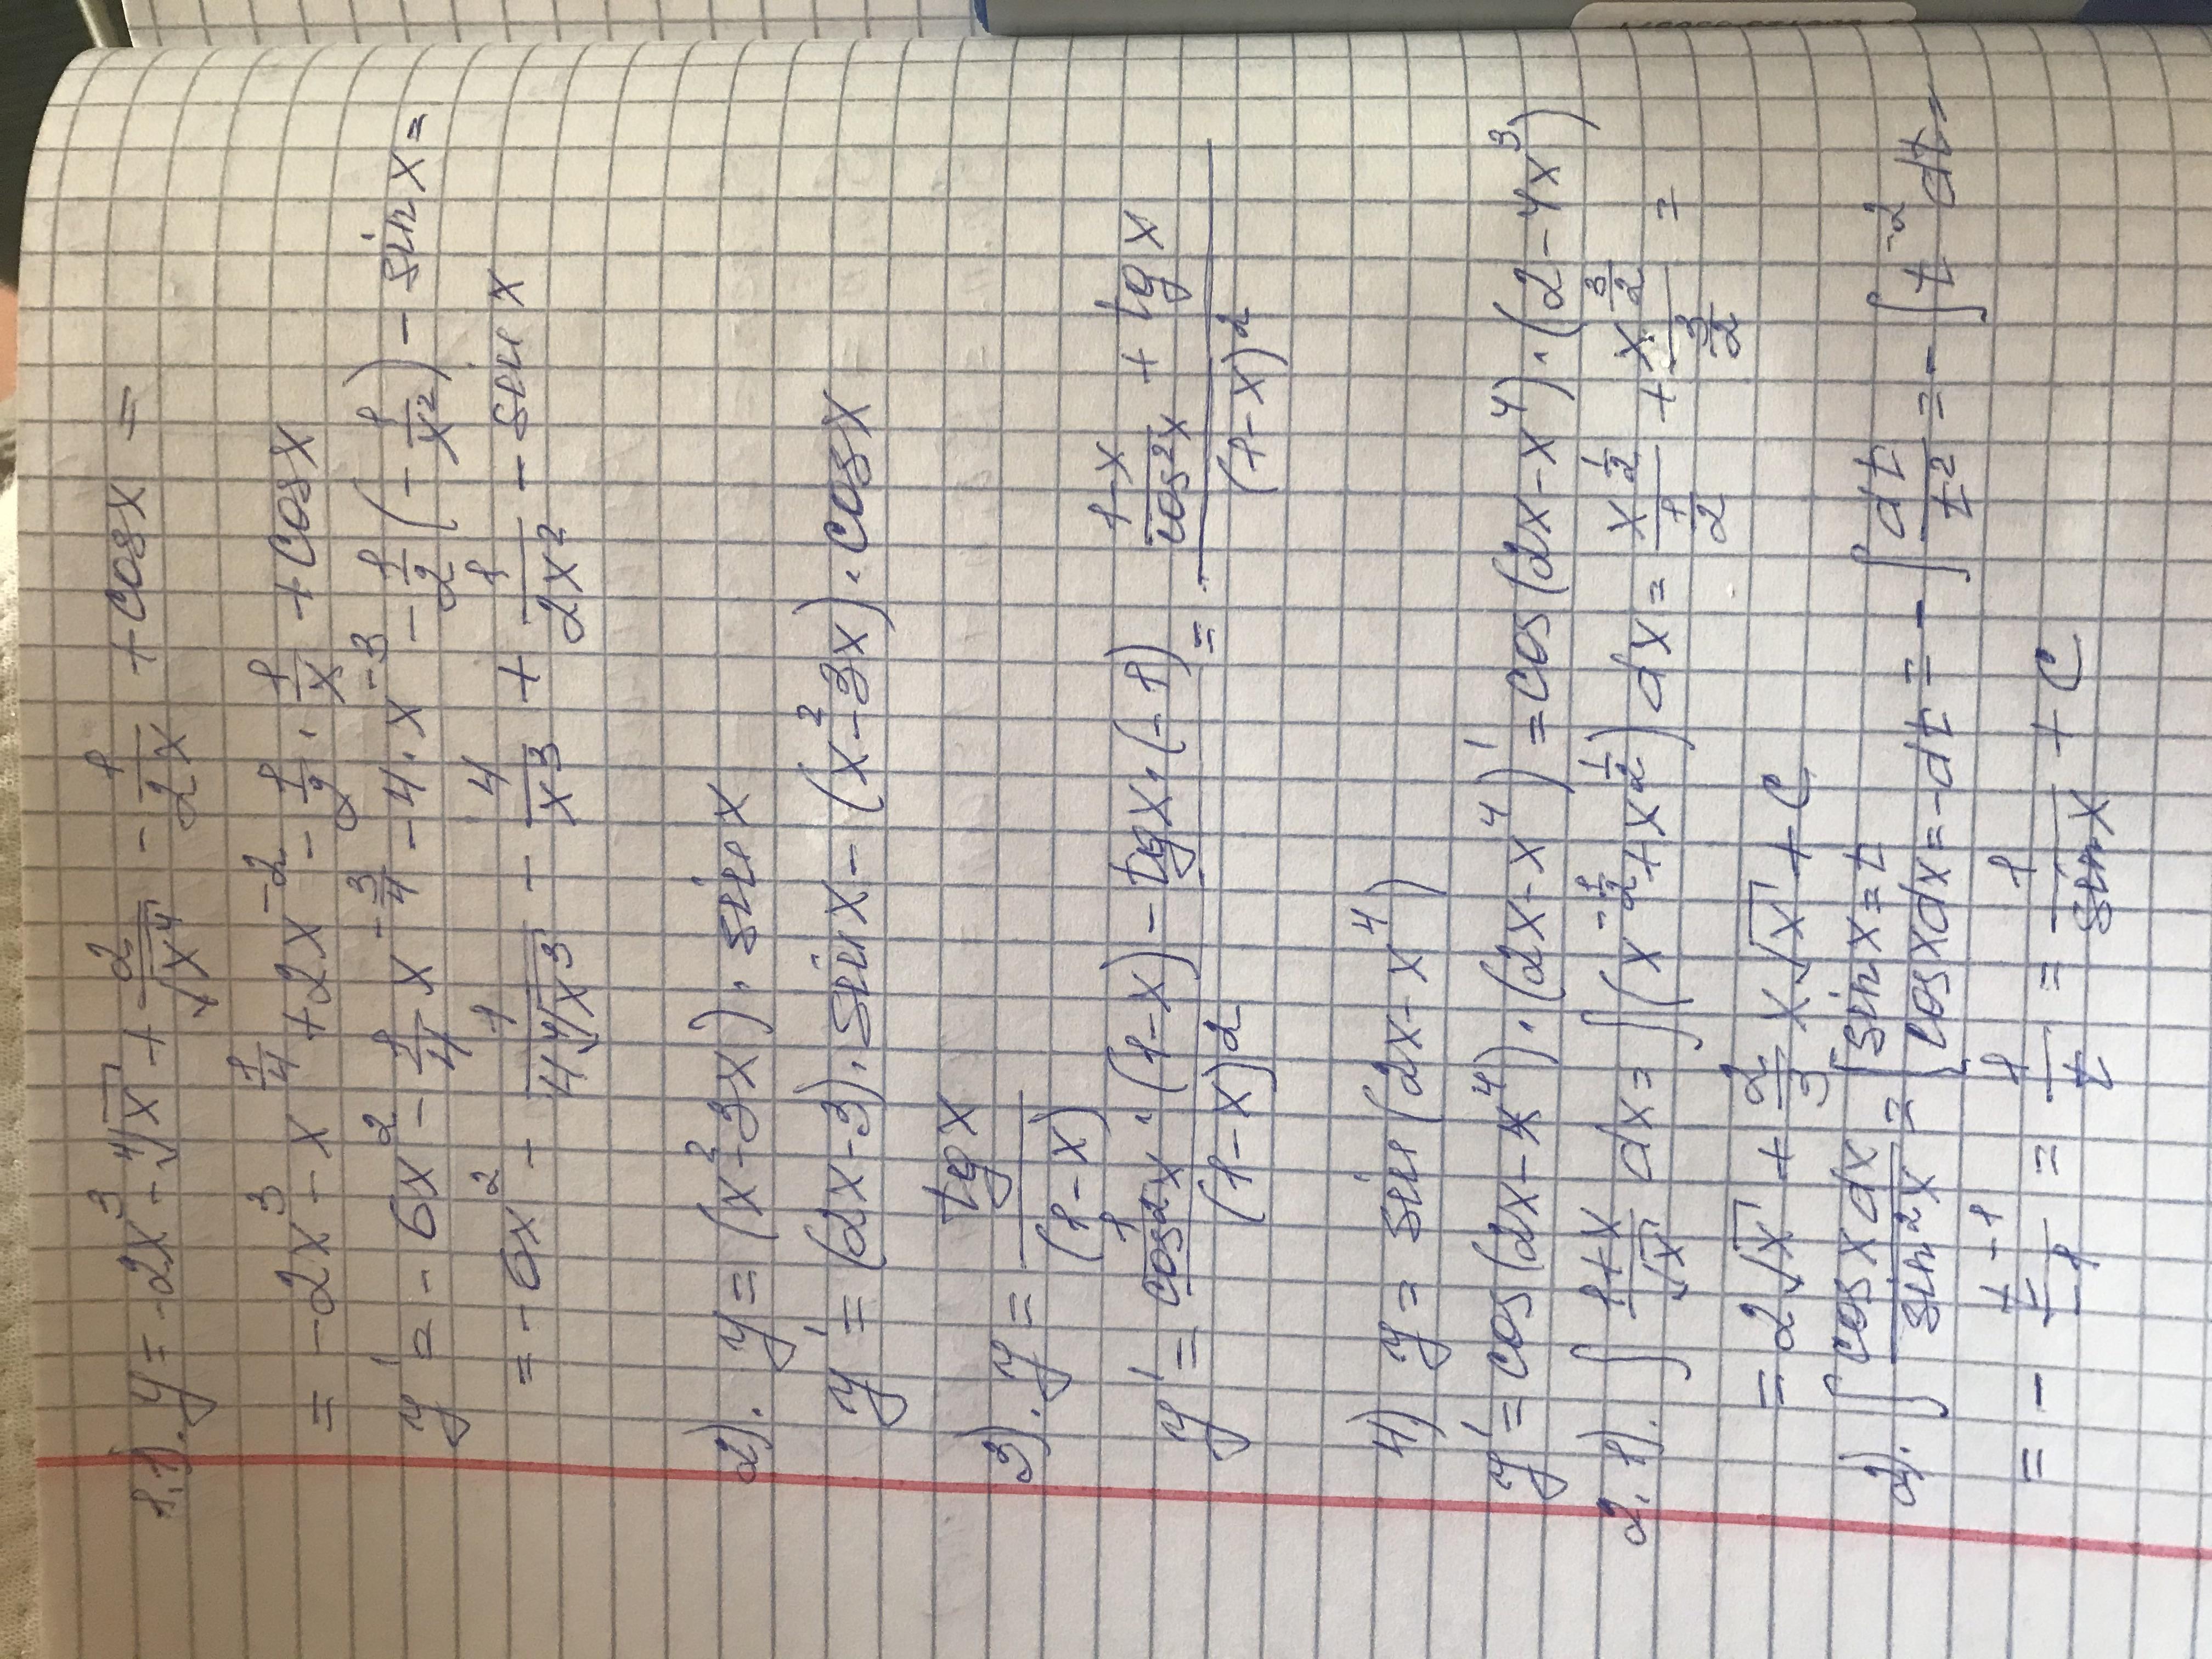 1.1). y = -2x³ - ⁴√x + 2/√x⁴ - 1/2x + cosx =
= -2x³ - x^(1/4) + 2x⁻² - 1/2 · 1/x + cosx
y' = -6x² - 1/4 x^(-3/4) - 4·x⁻³ - 1/2 (-1/x²) - sinx =
= -6x² - 1/(4⁴√x³) - 4/x³ + 1/2x² - sinx
2). y = (x² - 3x) · sinx
y' = (2x-3) · sinx - (x² - 3x) · cosx
3). y = tgx/(1-x)
y' = (1/cos²x · (1-x) - tgx · (-1))/(1-x)² = ((1-x)/cos²x + tgx)/(1-x)²
4) y = sin(2x - x⁴)
y' = cos(2x - x⁴) · (2x - x⁴)' = cos(2x - x⁴) · (2 - 4x³)
2. 1). ∫ (1+x)/√x dx = ∫ (x^(-1/2) + x^(1/2)) dx = x^(1/2)/(1/2) + x^(3/2)/(3/2) =
= 2√x + 2/3 x√x + C
2). ∫ cosxdx/sin²x = [sinx = t
cosxdx = -dt = - ∫ dt/t² = - ∫ t⁻² dt =
= - t⁻¹/-1 = 1/t = 1/sinx + C